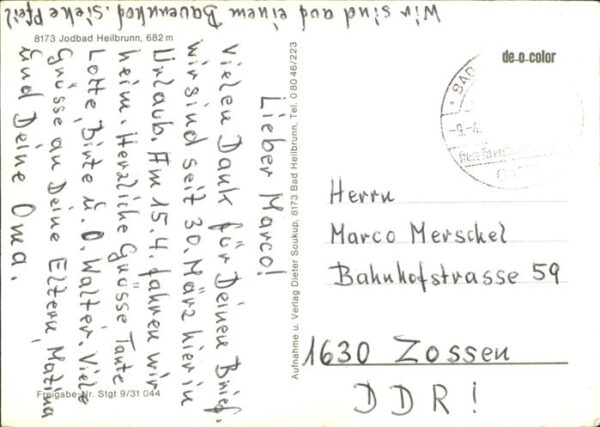 Wir sind auf einem Bauernhof. Siehe Pfeil
8173 Jodbad Heilbrunn, 682 m
Lieber Marco!
Vielen Dank für Deinen Brief.
wir sind seit 30. März hier in
Urlaub. Am 15.4. fahren wir
heim. Herzliche Grüsse Tante
Lotte, Birte u. O. Walter. Viele
Grüsse an Deine Eltern, Matina
und Deine Oma.
Freigabe-Nr. Stgt 9/31 044
Aufnahme u. Verlag Dieter Soukup, 8173 Bad Heilbrunn, Tel. 0 80 46/223
de-o-color
BAD
-9.-4.
Herrn
Marco Merschel
Bahnhofstrasse 59
1630 Zossen
DDR!